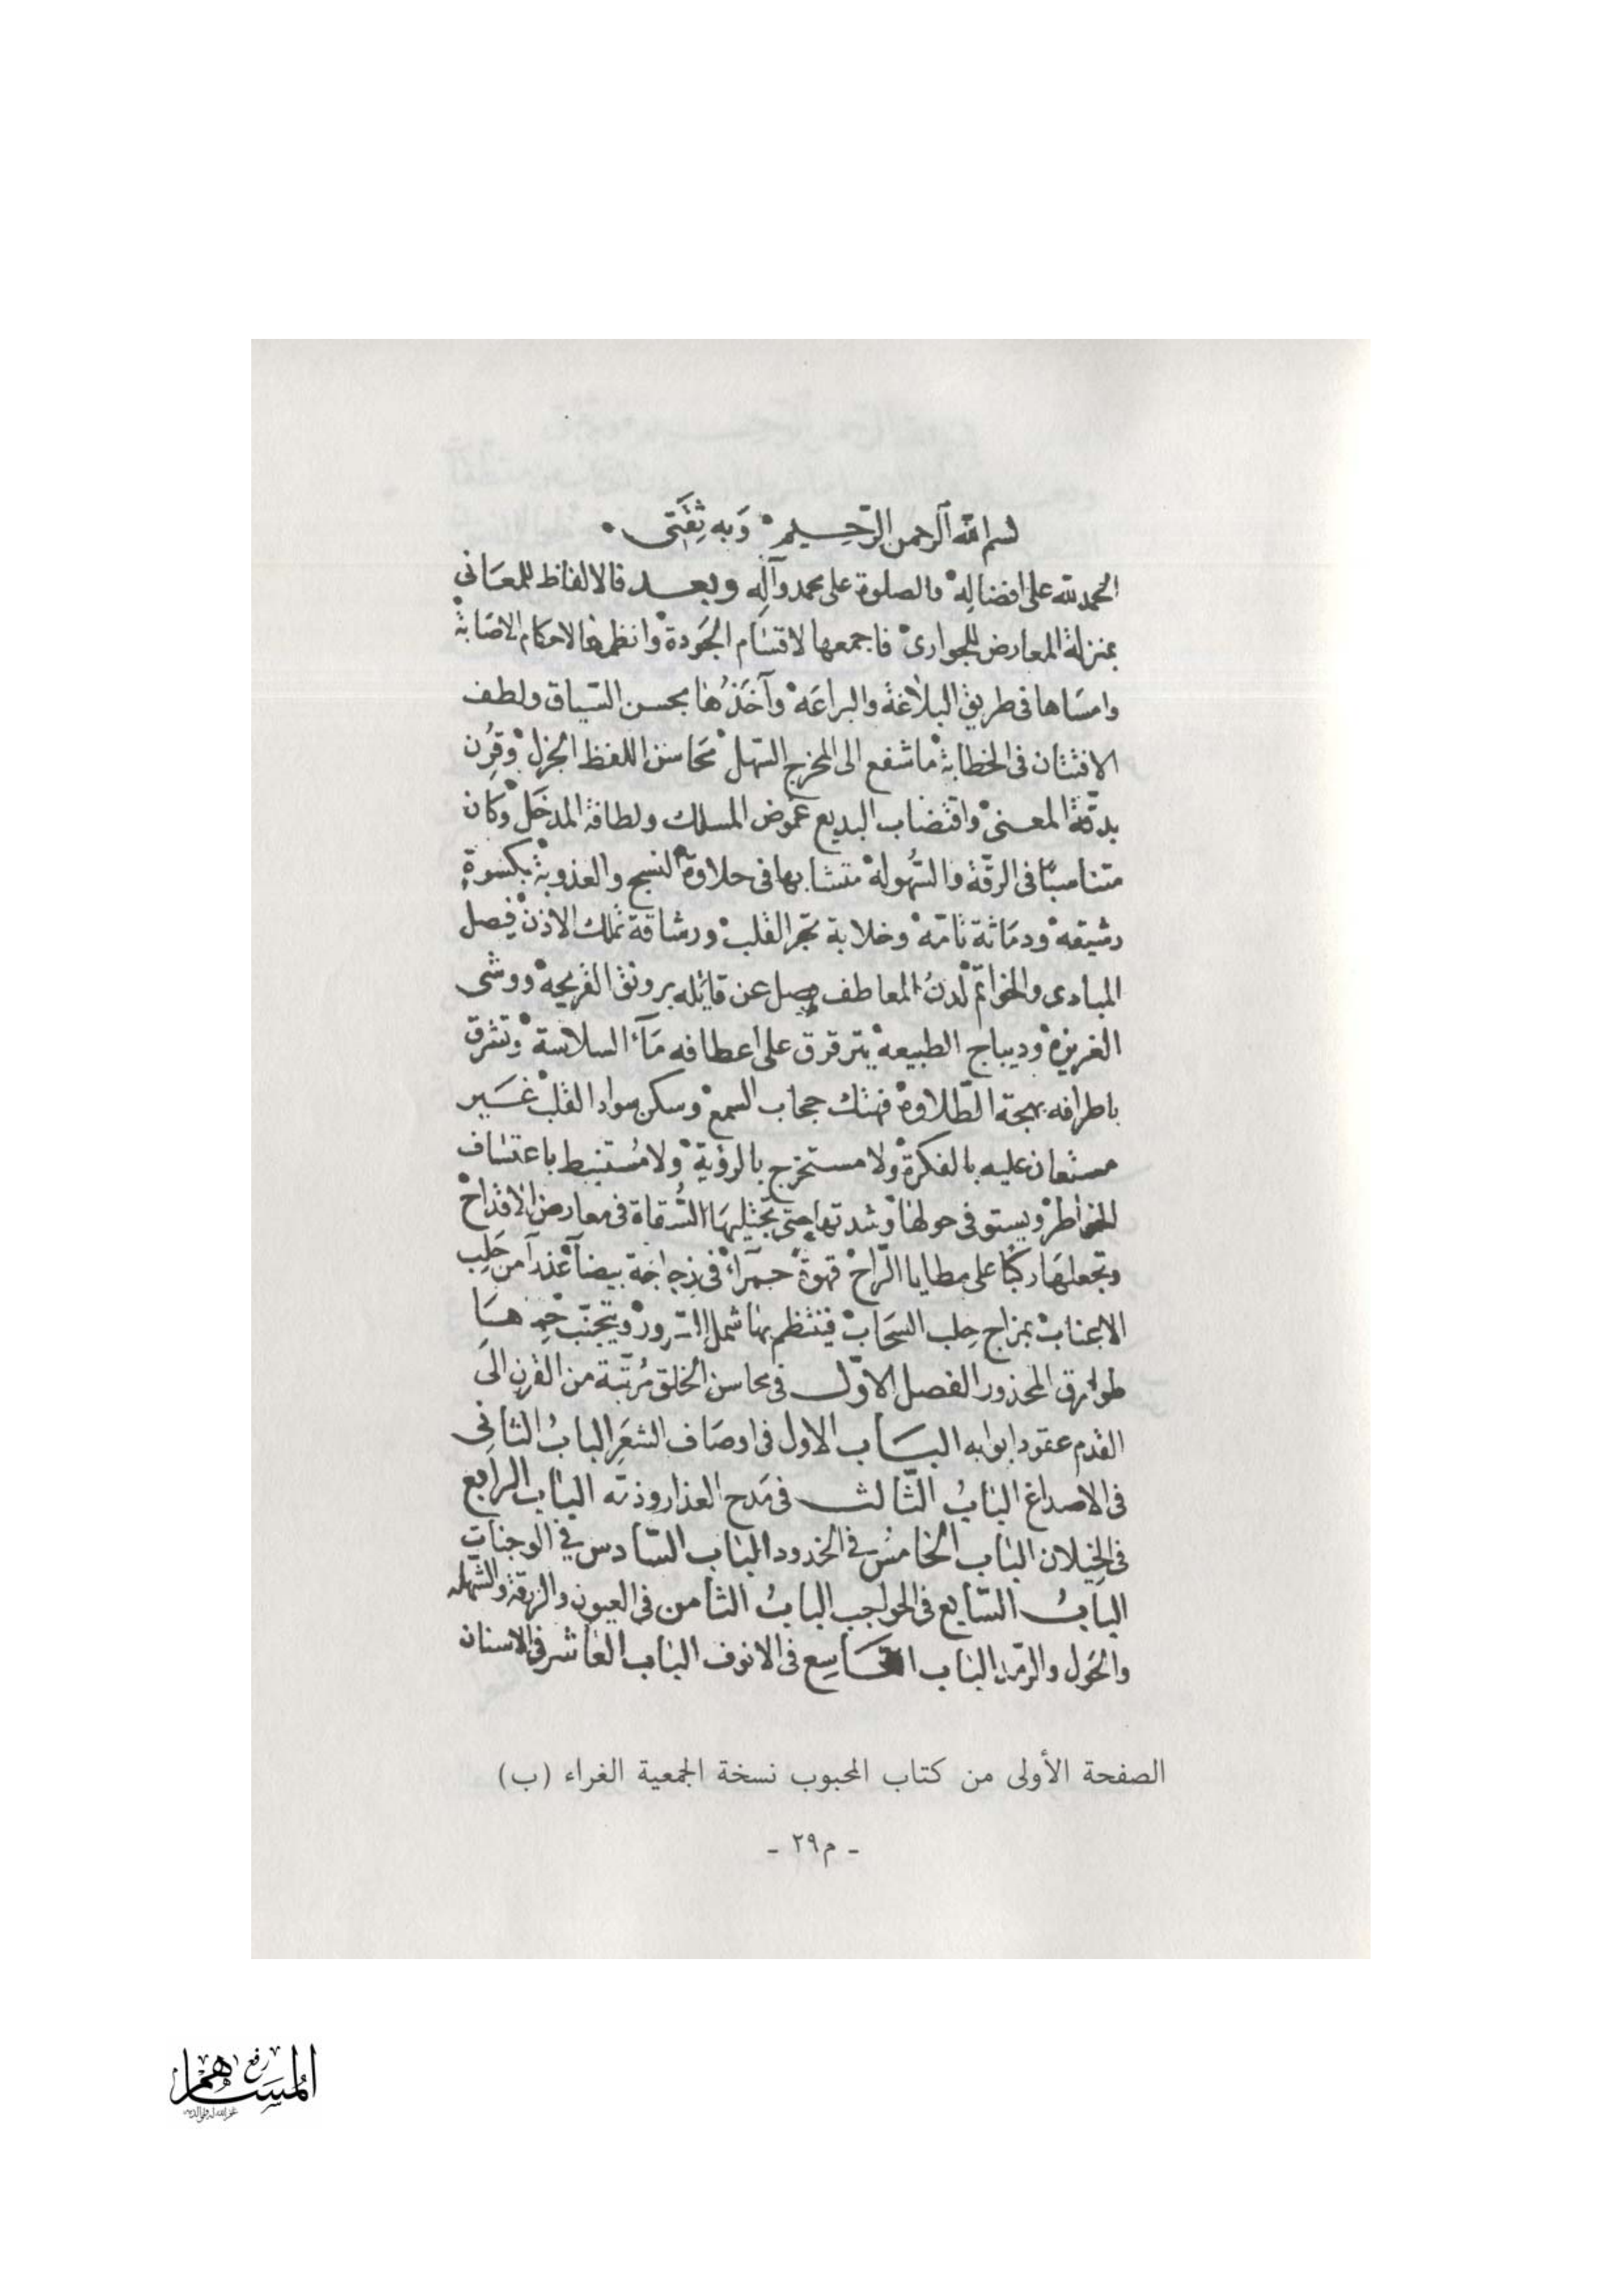 بسم الله الرحمن الرحيم وَبه ثِقَتى
الحمد لله على افضالِهْ والصلوة على محمد وآلِه وبعـد فالالفاظ للمعَانى
بمنزلة المعارض للجوارىْ فاجمعها لاقسَام الجَودةْ وانظمها لاحكام الاصَابةْ
وامسَاها فى طريق البلاغة والبراعَهْ وآخَذُها بحسن السّياق ولطف
الافتتان فى الخطابةْ ما شفع الى المخرج السّهلْ محَاسن اللفظ الجزلْ وقُرِن
بدقّة المعـنىْ واقتضاب البديع غموض المسلك ولطافة المدخَلْ وكان
متناسبًا فى الرقّة والسُّهولهْ متشابها فى حلاوة النسج والعذوبةْ بكسْوةٍ
رشيقهْ ودمَاثة تامّهْ وخلابة تجر القلبْ ورشاقة تملك الاذنْ فيصل
المبادى والخواتمْ لَدنُ المعاطف يصل عن قائله برونق القريحهْ ووشى
الغريزهْ وديباج الطبيعهْ يترقرق على اعطافه مَآء السلاسةْ وتشرق
باطرافه بهجة الطّلاوهْ فهتك حجاب السمعْ وسكن سواد القلبْ غـَير
مستعان عليه بالفكرةْ ولا مستخرج بالرؤيةْ ولا مُستنبط باعتسَاف
للخواطرْ ويستوفى حولها وشدتها حتى تجتليهَا السُّقاة فى معارض الاقداحْ
وتجعلهَا ركبًا على مطايا الرّاحْ قهوةً حمرآءْ فى زجاجة بيضآء عذرآ من حَلب
الاعنابْ بمزاج حلب السحَابْ فينتظم بها شمل السّرورْ ويتجنّب حِمـ هـَا
طوارق المحذور الفصل الاوّل فى محاسن الخلق مُرتّبة من القرن الى
القدم عقود ابوابه البَـاب الاول فى اوصَاف الشعَرِ البابُ الثانِى
فى الاصداغ البَابُ الثّالث فى مَدح العذار وذمّه البَاب الرابع
فى الخِيلان البَاب الخامسُ فى الخدود البَاب السّادس فى الوجناتِ
البابُ السّابع فى الحواجب البابُ الثامن فى العيون والزرقة والشهله
والحَول والرّمد البَاب التَاسِع فى الانوف البَاب العَاشر فى الاسنان
الصفحة الأولى من كتاب المحبوب نسخة الجمعية الغراء (ب)
- م٢٩ -
رفع
المساهم
غفر الله له ولوالديه